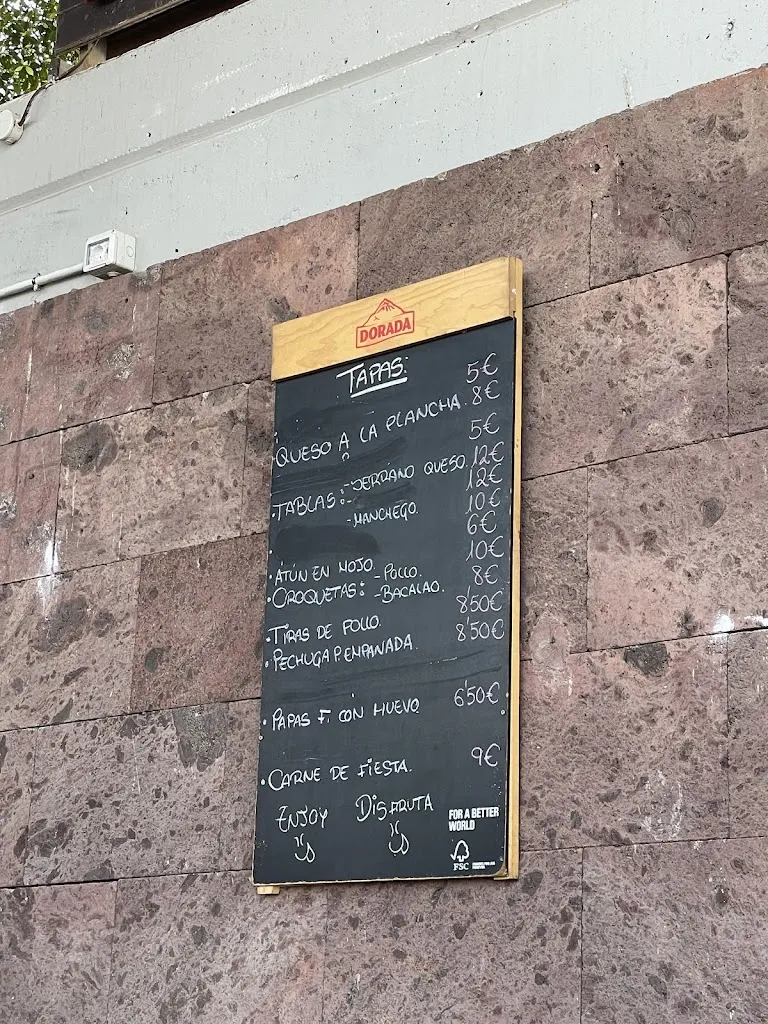 DORADA
TAPAS:
5€
8€
QUESO A LA PLANCHA.
5€
TABLAS: - SERRANO QUESO. 12€
12€
- MANCHEGO. 10€
6€
ATÚN EN MOJO. 10€
CROQUETAS: - POLLO. 8€
- BACALAO.
8'50€
TIRAS DE POLLO. 8'50€
PECHUGA P. EMPANADA.
PAPAS F. CON HUEVO 6'50€
CARNE DE FIESTA. 9€
ENJOY DISFRUTA
FOR A BETTER
WORLD
FSC